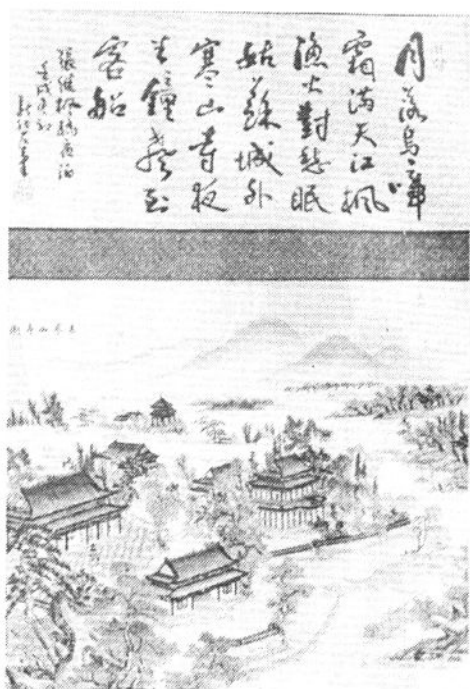 月落烏啼
霜滿天江楓
漁火對愁眠
姑蘇城外
寒山寺夜
半鐘聲到
客船
張繼楓橋夜泊
壬戌